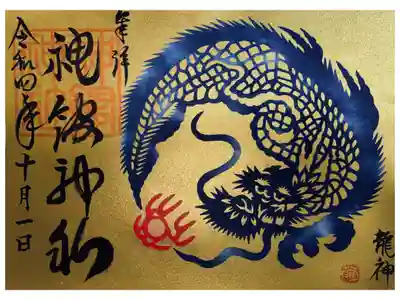 龍神
奉拝
神館神社
令和四年十月一日